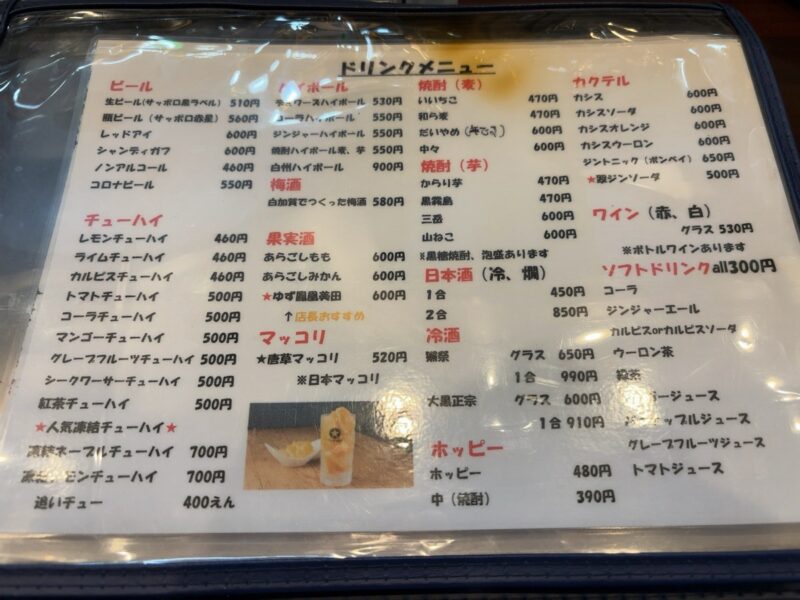 ドリンクメニュー
ビール
生ビール(サッポロ黒ラベル) 510円
瓶ビール (サッポロ赤星) 560円
レッドアイ 600円
シャンディガフ 600円
ノンアルコール 460円
コロナビール 550円
チューハイ
レモンチューハイ 460円
ライムチューハイ 460円
カルピスチューハイ 460円
トマトチューハイ 500円
コーラチューハイ 500円
マンゴーチューハイ 500円
グレープフルーツチューハイ 500円
シークワーサーチューハイ 500円
紅茶チューハイ 500円
★人気凍結チューハイ★
凍結ネーブルチューハイ 700円
凍結レモンチューハイ 700円
追いチュー 400えん
ハイボール
デュワーズハイボール 530円
コーラハイボール 550円
ジンジャーハイボール 550円
焼酎ハイボール麦、芋 550円
白州ハイボール 900円
梅酒
白加賀でつくった梅酒 580円
果実酒
あらごしもも 600円
あらごしみかん 600円
★ゆず鳳凰美田 600円
↑店長おすすめ
マッコリ
★唐草マッコリ 520円
※日本マッコリ
焼酎 (麦)
いいちこ 470円
和ら麦 470円
だいやめ 600円
中々 600円
焼酎 (芋)
からり芋 470円
黒霧島 470円
三岳 600円
山ねこ 600円
※黒糖焼酎、泡盛あります
日本酒 (冷、燗)
1合 450円
2合 850円
冷酒
獺祭 グラス 650円
1合 990円
大黒正宗 グラス 600円
1合 910円
ホッピー
ホッピー 480円
中 (焼酎) 390円
カクテル
カシス 600円
カシスソーダ 600円
カシスオレンジ 600円
カシスウーロン 600円
ジントニック (ボンベイ) 650円
★翠ジンソーダ 500円
ワイン (赤、白)
グラス 530円
※ボトルワインあります
ソフトドリンクall300円
コーラ
ジンジャーエール
カルピスorカルピスソーダ
ウーロン茶
緑茶
ジュース
パイナップルジュース
グレープフルーツジュース
トマトジュース